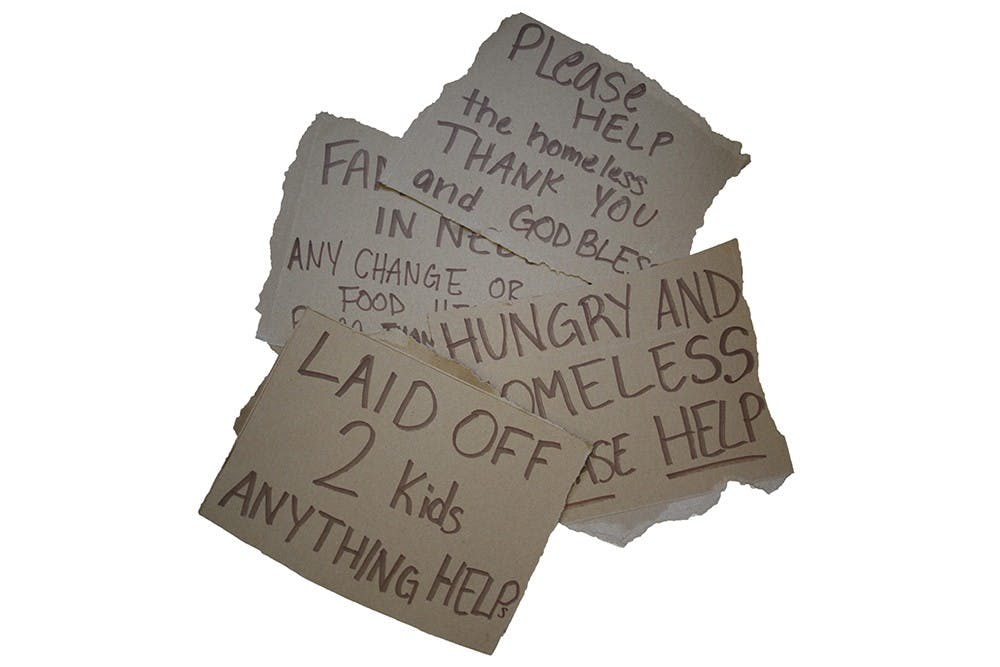 PLease
HELP
the homeless
THANK YOU
and GOD BLES
FA
IN NE
ANY CHANGE OR
FOOD
HUNGRY AND
OMELESS
SE HELP
LAID OFF
2 Kids
ANYTHING HELPs